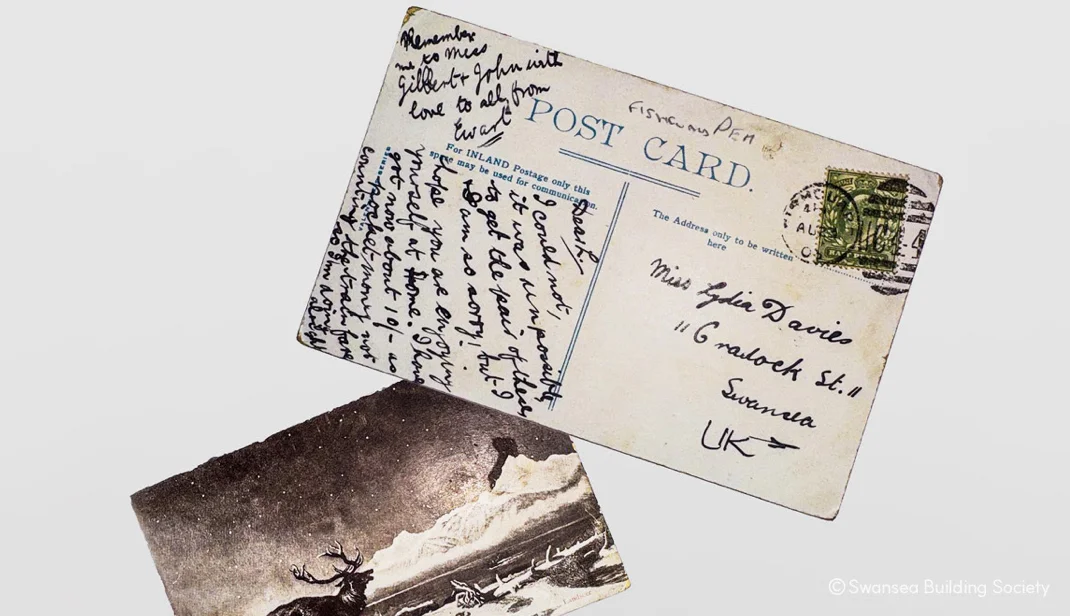 Remember
me to Miss
Gilbert + John with
love to all from
Ewart
POST CARD.
FISHGUARD PEM
For INLAND Postage only this
space may be used for communication.
The Address only to be written
here
Dear L.
I could not,
it was impossible
to get the pair of these
I am so sorry! but I
hope you are enjoying
yourself at home. I have
got now about 10/- as
pocket money not
counting the train fare
so I'm doing
alright
Miss Lydia Davies
11 Cradock St.
Swansea
UK
©Swansea Building Society